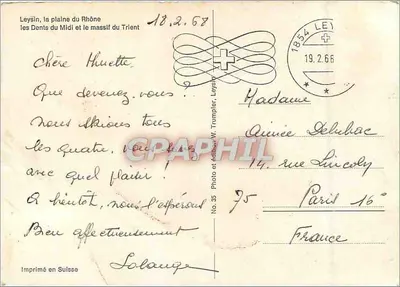 Leysin, la plaine du Rhône
les Dents du Midi et le massif du Trient
18.2.68
chère Huette,
Que devenez-vous ?
nous skions tous
les quatre, vous
avec quel plaisir !
A bientôt, nous l'espérons
Bien affectueusement
Solange
Imprimé en Suisse
No. 35 Photo et W. Trumpler, Leysin
1854 LEY
19.2.68
Madame
Aimée Delubac
14, rue Lincoln
75 Paris 16e
France
CPAPHIL